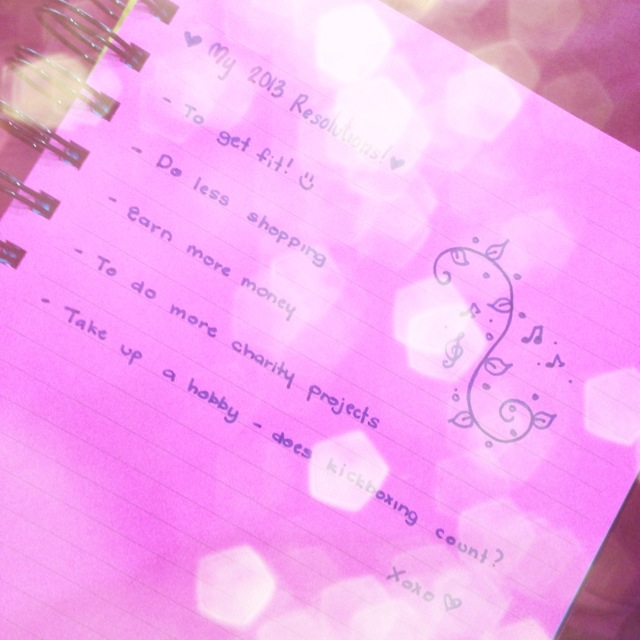 ♥ My 2013 Resolutions! ♥
- To get fit! :)
- Do less shopping
- earn more money
- To do more charity projects
- Take up a hobby - does kickboxing count?
Xoxo ♡